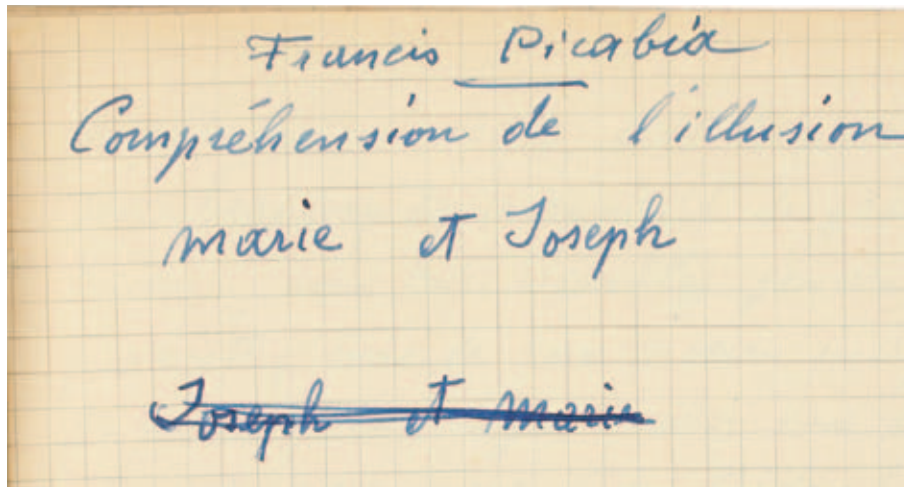 Francis Picabia
Compréhension de l'illusion
marie et Joseph
Joseph et marie